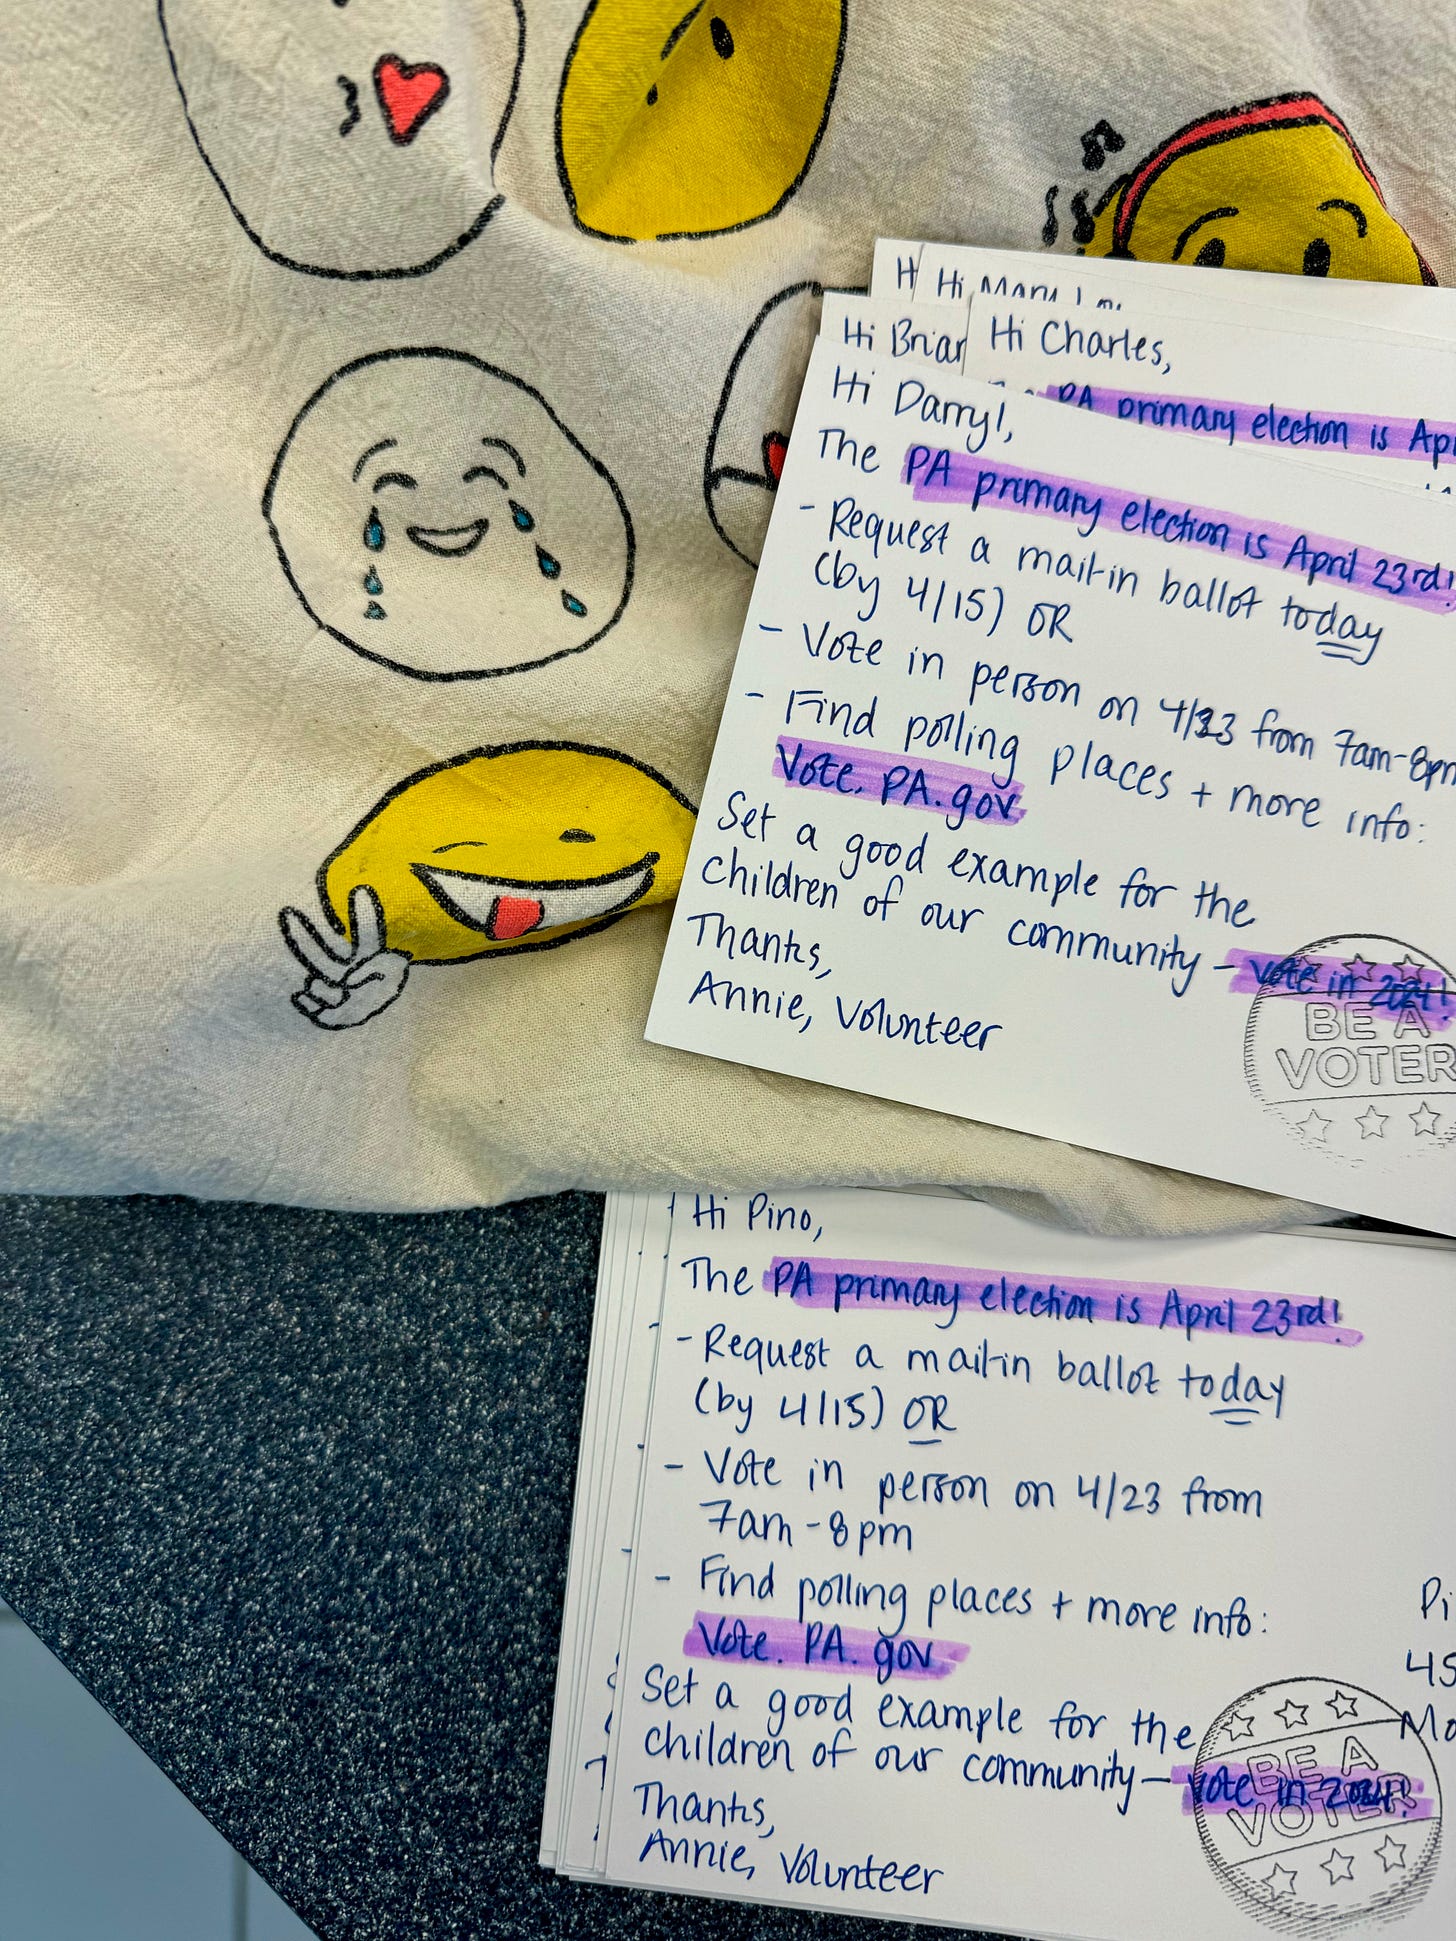 H
Hi Mary Lou
Hi Brian
Hi Charles,
PA primary election is Ap
Hi Darryl,
The PA primary election is April 23rd!
- Request a mail-in ballot today
(by 4/15) OR
- Vote in person on 4/23 from 7am-8pm
- Find polling places + more info:
Vote.PA.gov
Set a good example for the
children of our community - vote in 2024!
Thanks,
Annie, Volunteer
BE A
VOTER
Hi Pino,
The PA primary election is April 23rd!
- Request a mail-in ballot today
(by 4/15) OR
- Vote in person on 4/23 from
7am-8pm
- Find polling places + more info:
Vote.PA.gov
Set a good example for the
children of our community - vote in 2024!
Thanks,
Annie, Volunteer
Pi
45
Mo
BE A
VOTER